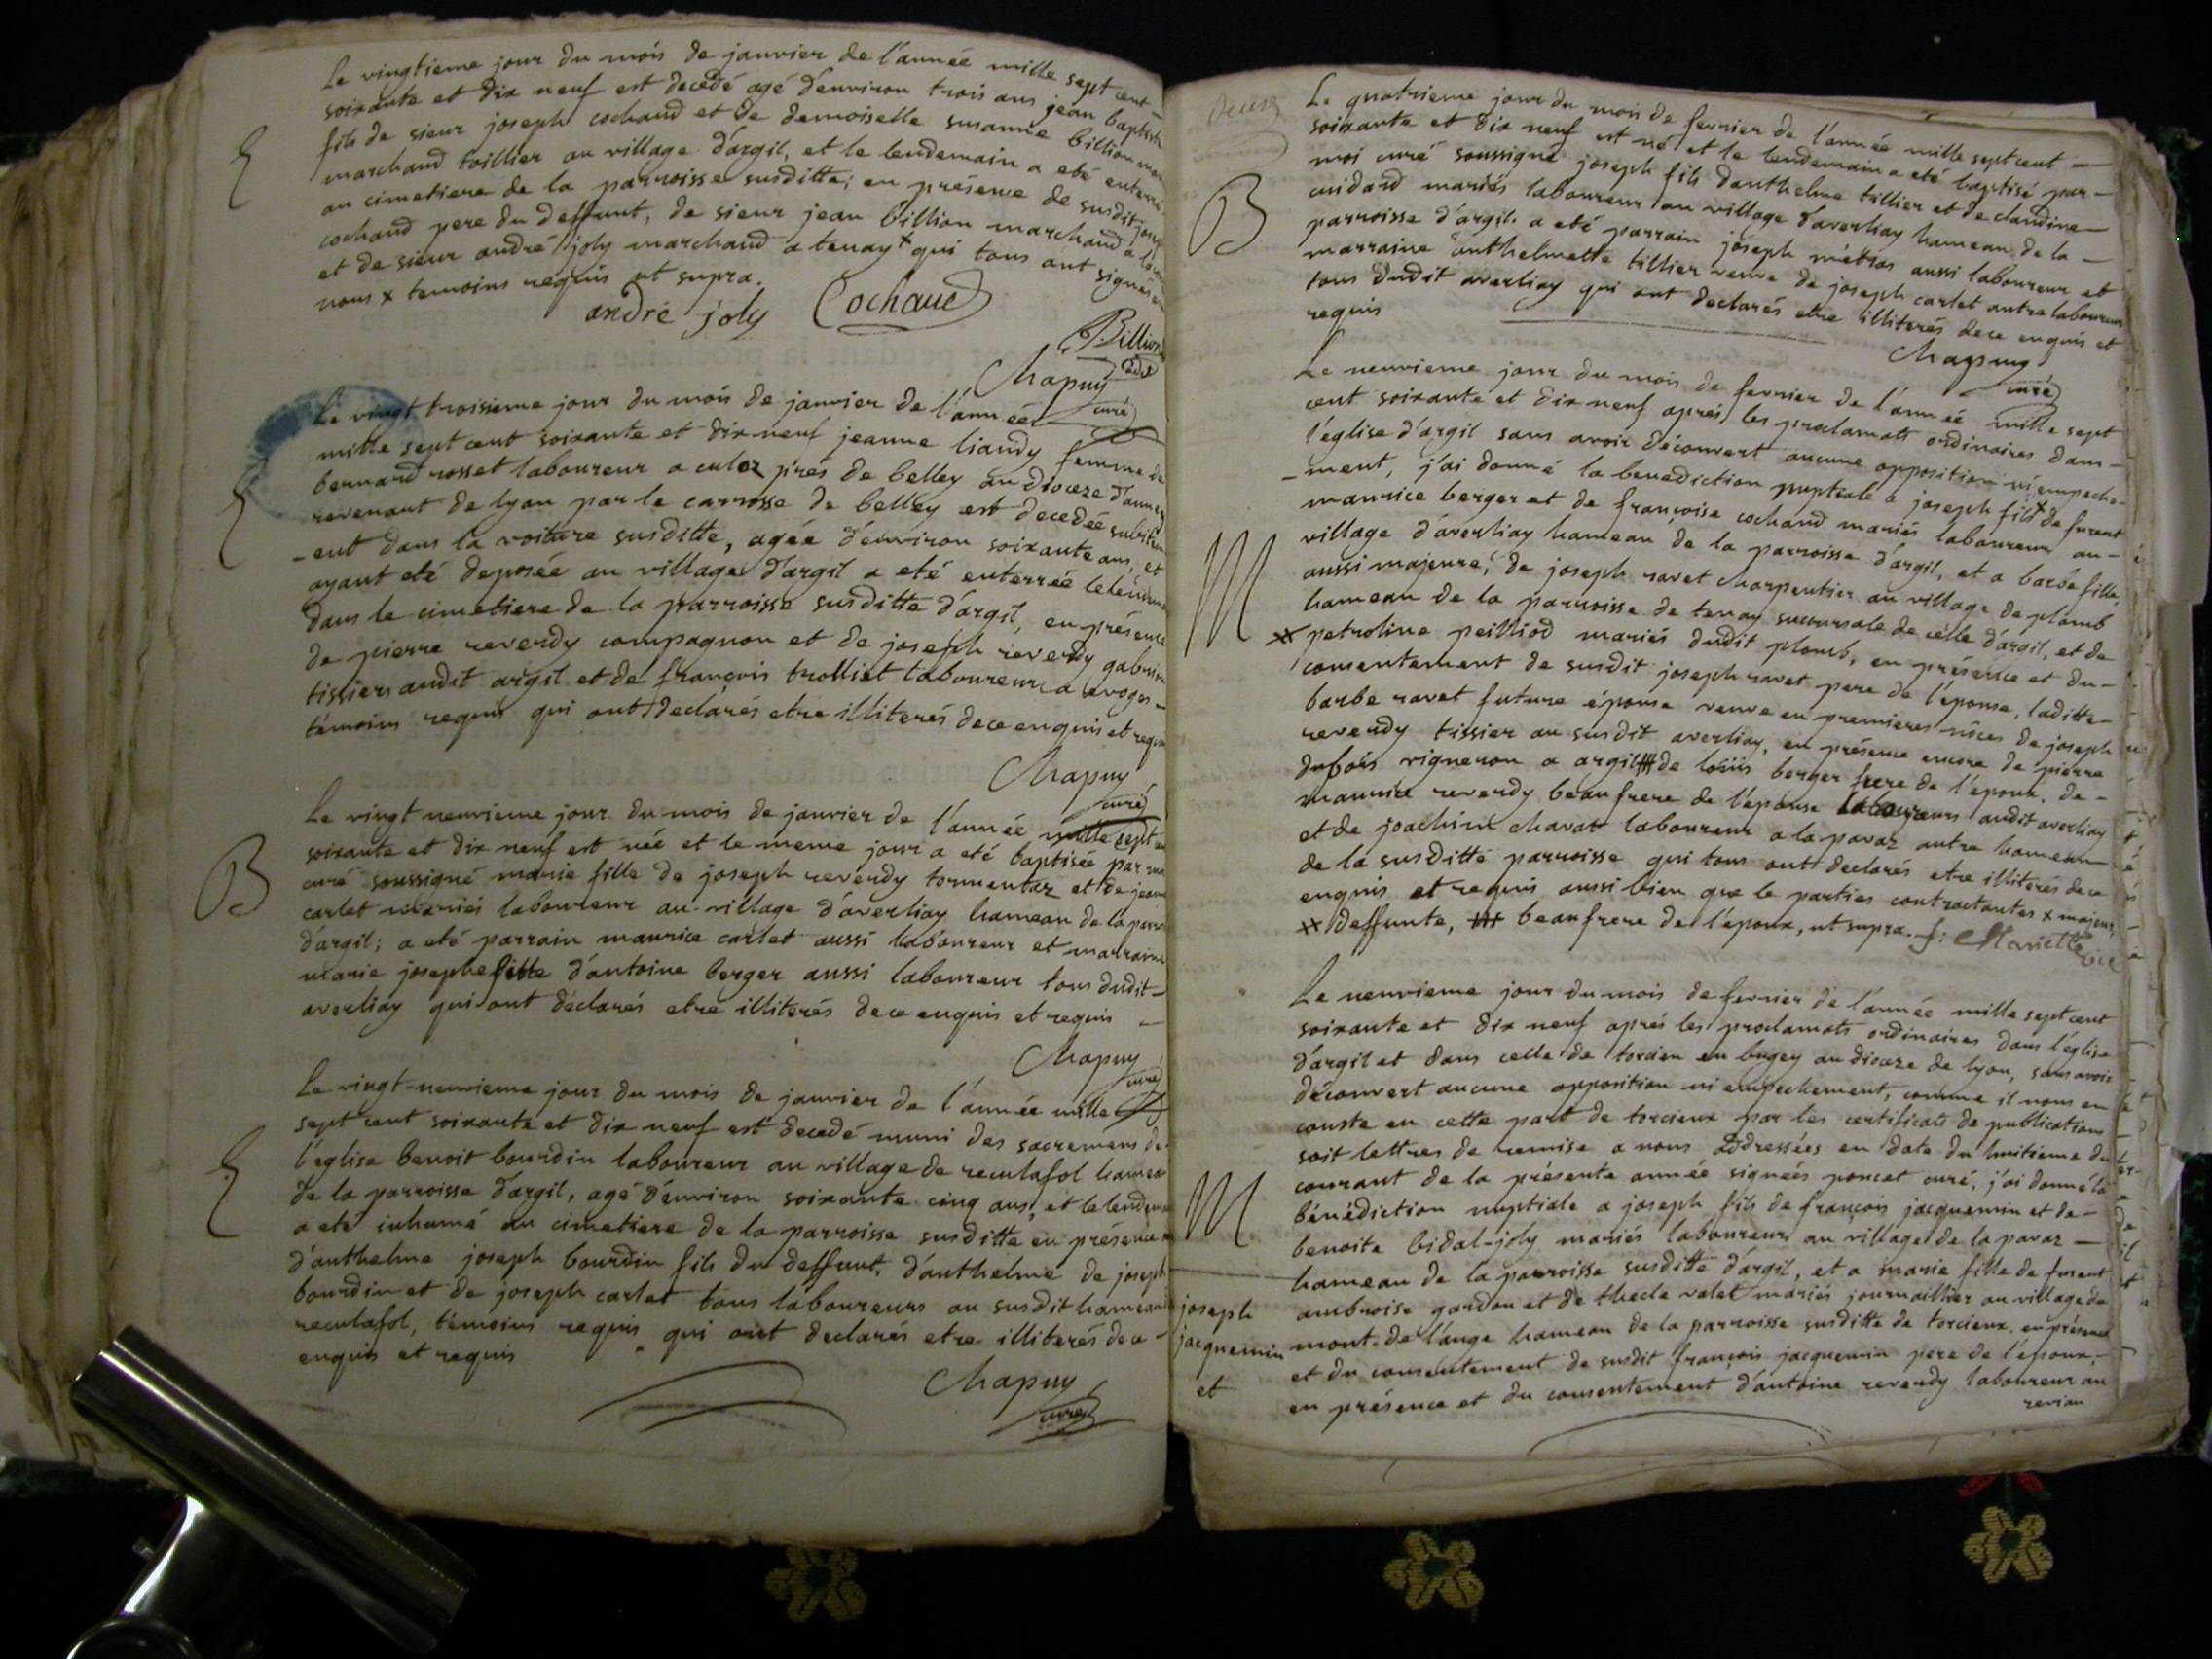 Le vingtieme jour du mois de janvier de l'année mille sept cent
soixante et dix neuf est decedé agé d'environ trois ans jean baptiste
fils de sieur joseph cochaud et de demoiselle susanne billion
marchand toillier au village d'argil, et le lendemain a eté enterré
E
au cimetiere de la parroisse susditte; en présence de susdit
cochaud pere du deffunt, de sieur jean billion marchand a
et de sieur andré joly marchand a tenay x qui tous ont signés
nous x temoins requis ut supra.
andré joly Cochaud
Billion
Chapuy
curé
Le vingt troisieme jour du mois de janvier de l'année
mille sept cent soixante et dix neuf jeanne liaudy femme de
bernard rosset laboureur a culoz près de belley au dioceze
revenant de lyon par le carrosse de belley est decedée
E
-ent dans la voiture susditte, agée d'environ soixante ans, et
ayant eté deposée au village d'argil a eté enterrée
dans le cimetiere de la parroisse susditte d'argil, en présence
de pierre reverdy compagnon et de joseph reverdy
tissiers audit argil et de françois trolliet laboureur a evoges -
témoins requis qui ont declarés etre illiterés de ce enquis et requis
Chapuy
curé
Le vingt neuvieme jour du mois de janvier de l'année mille sept
soixante et dix neuf est née et le meme jour a eté baptisée par
curé soussigné marie fille de joseph reverdy tormentaz et de
B
carlet mariés laboureur au village d'averliay hameau de la
d'argil; a eté parrain maurice carlet aussi laboureur et marraine
marie josephe fille d'antoine berger aussi laboureur tous dudit -
averliay qui ont déclarés etre illiterés de ce enquis et requis -
Chapuy
curé
Le vingt-neuvieme jour du mois de janvier de l'année mille
sept cent soixante et dix neuf est decedé muni des sacremens de
l'eglise benoit bourdin laboureur au village de reculafol hameau
E
de la parroisse d'argil, agé d'environ soixante cinq ans, et le
a eté inhumé au cimetiere de la parroisse susditte en présence
d'anthelme joseph bourdin fils du deffunt, d'anthelme de joseph
bourdin et de joseph carlet tous laboureurs au susdit hameau
reculafol, témoins requis qui ont declarés etre illiterés de ce -
enquis et requis
Chapuy
curé
Le quatrieme jour du mois de fevrier de l'année mille sept cent -
soixante et dix neuf est né et le lendemain a eté baptisé par -
moi curé soussigné joseph fils d'anthelme tillier et de claudine -
B
cuidard mariés laboureur au village d'averliay hameau de la -
parroisse d'argil. a eté parrain joseph métras aussi laboureur et
marraine anthelmette tillier veuve de joseph carlet autre laboureur
tous dudit averliay qui ont declarés etre illiterés de ce enquis et
requis
Chapuy
curé
Le neuvieme jour du mois de fevrier de l'année mille sept
cent soixante et dix neuf après les proclamats ordinaires dans -
l'église d'argil sans avoir découvert aucune opposition ni empeche-
-ment, j'ai donné la benediction nuptiale a joseph fils x de furent
maurice berger et de françoise cochaud mariés laboureur au -
village d'averliay hameau de la parroisse d'argil, et a barbe fille
M
aussi majeure, de joseph ravet charpentier au village de plomb
hameau de la parroisse de tenay succursale de celle d'argil, et de
xx petroline peilliod mariés dudit plomb, en présence et du -
consentement de susdit joseph ravet pere de l'epouse, laditte -
barbe ravet future épouse veuve en premieres nôces de joseph
reverdy tissier au susdit averliay, en présence encore de pierre
dubois vigneron a argil xxx de loüis berger frere de l'époux, de -
maurice reverdy beaufrere de l'epouse laboureurs audit averliay
et de joachim chavat laboureur a la pavaz autre hameau -
de la susditte parroisse qui tous ont declarés etre illiterés de ce
enquis et requis aussi bien que le parties contractantes x majeur,
xx deffunte, xxx beaufrere de l'époux, ut supra. f: Mariette
Le neuvieme jour du mois de fevrier de l'année mille sept cent
soixante et dix neuf aprés les proclamats ordinaires dans l'église
d'argil et dans celle de torcieu en bugey au dioceze de lyon, sans avoir
découvert aucune opposition ni empechement, comme il nous en
conste en cette part de torcieux par les certificats de publications
soit lettres de remise a nous addressées en date du huitieme du
courant de la présente année signées poncet curé, j'ai donné la
M
bénédiction nuptiale a joseph fils de françois jacquemin et de -
benoite bidal-joly mariés laboureurs au village de la pavaz -
hameau de la parroisse susditte d'argil, et a marie fille de furent
joseph
jacquemin
et
ambroise gardon et de thecle valet mariés journaillier au village de
mont-de l'ange hameau de la parroisse susditte de torcieux. en présence
et du consentement de susdit françois jacquemin pere de l'époux, -
en présence et du consentement d'antoine reverdy laboureur au